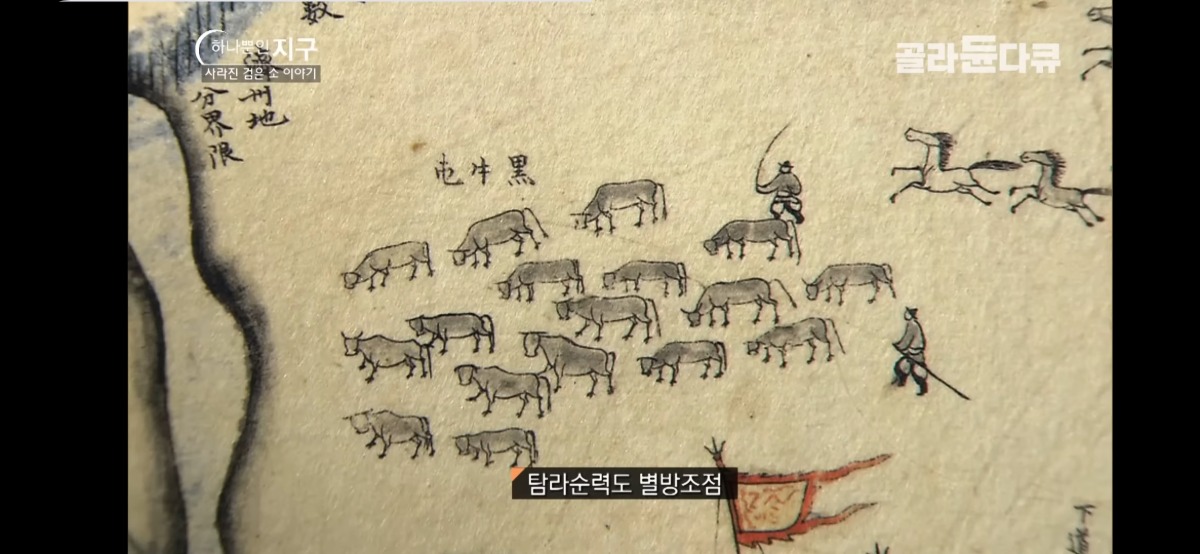 하나뿐인 지구
사라진 검은 소 이야기
골라듄다큐
數
州地
分界限
黑牛屯
탐라순력도 별방조점